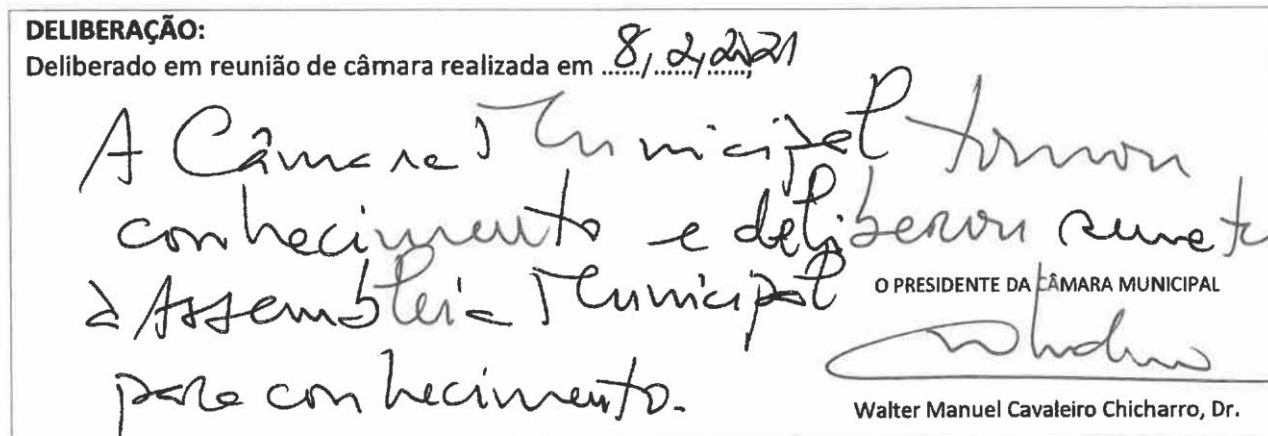 DELIBERAÇÃO:
Deliberado em reunião de câmara realizada em 8/2/2021
A Câmara Municipal tomou
conhecimento e deliberou remeter
à Assembleia Municipal
O PRESIDENTE DA CÂMARA MUNICIPAL
para conhecimento.
Walter Manuel Cavaleiro Chicharro, Dr.